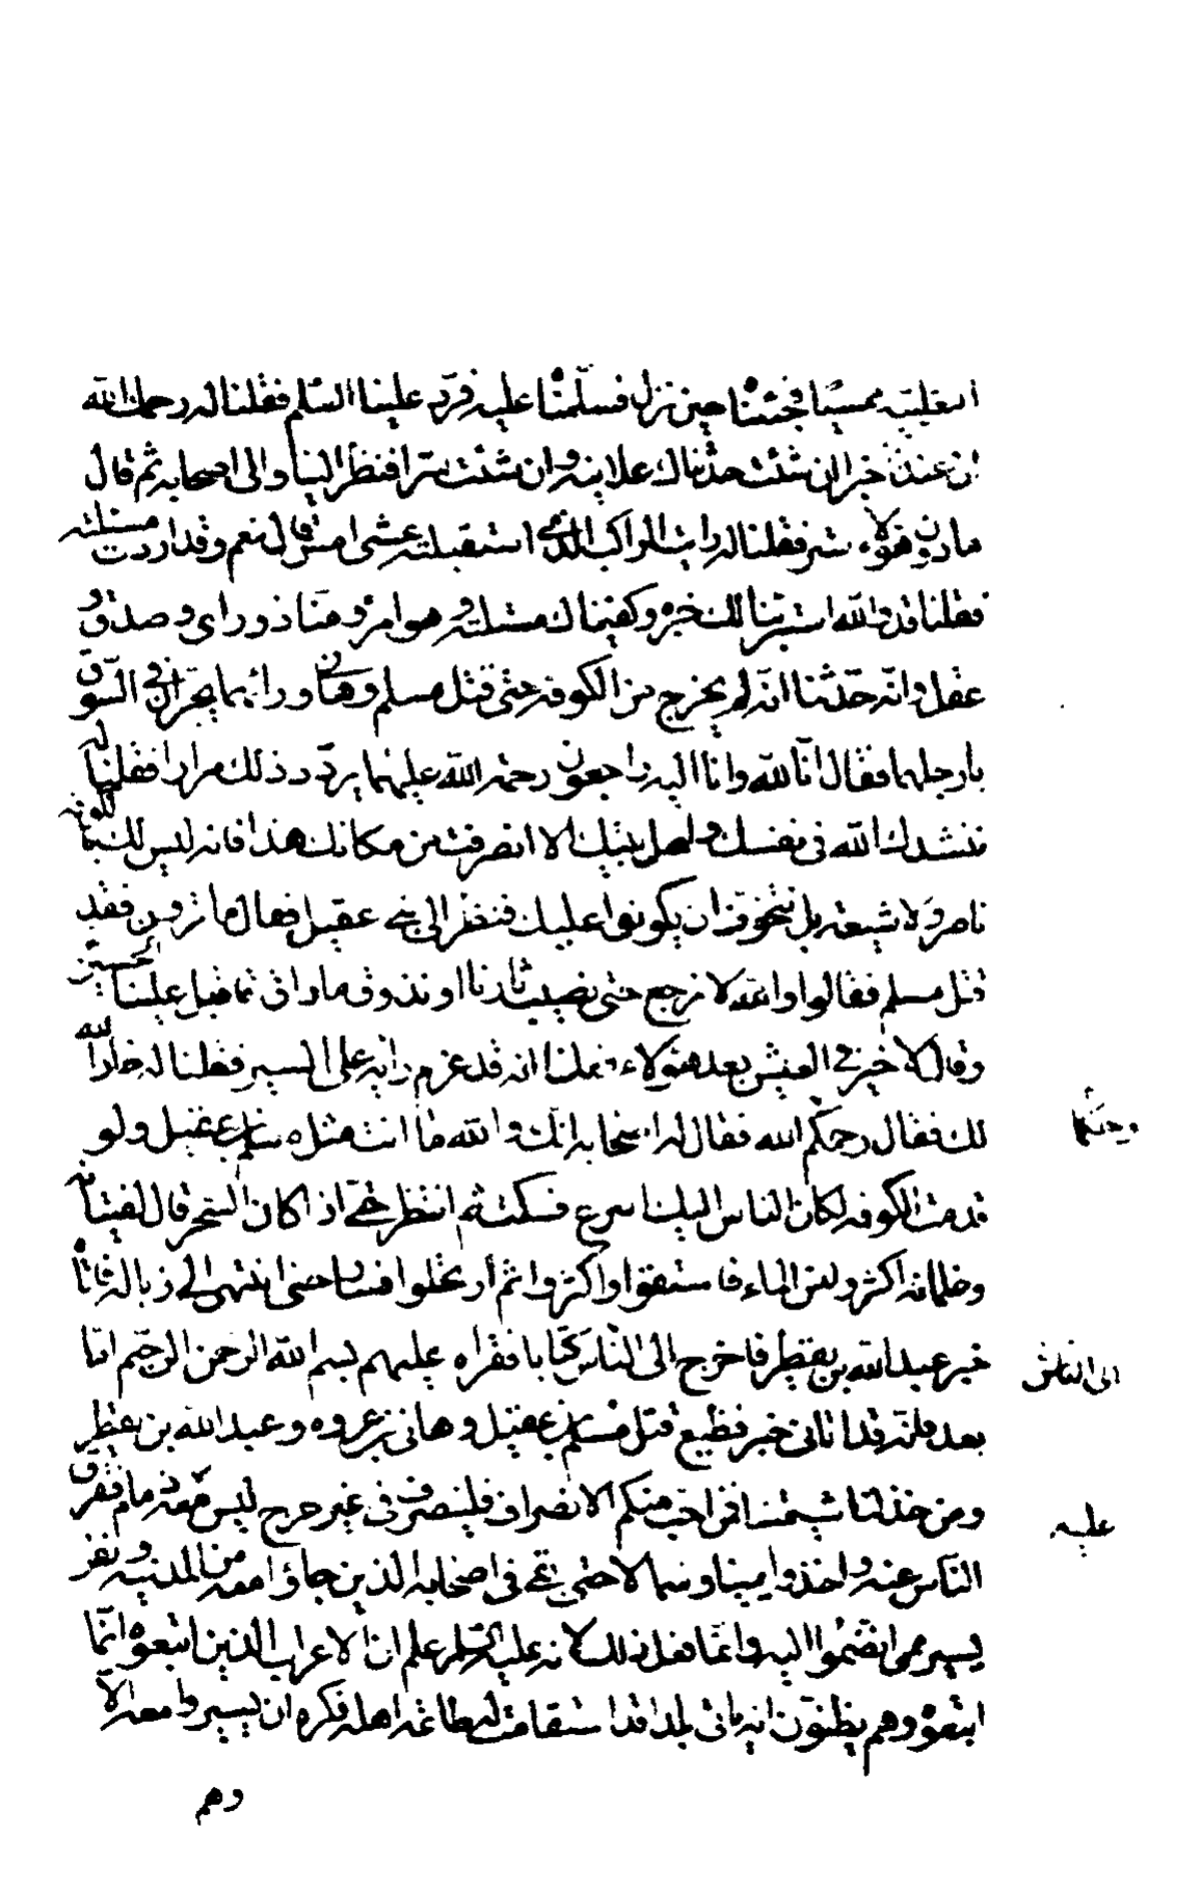 الثعلبيه ممسيًا فجئناه حين نزل فسلّمنا عليه فردّ علينا السّلم فقلنا له رحمك الله
ان عندنا خبرا ان شئت حدثناك علانيه وان شئت سرّا فنظر الينا والى اصحابه ثم قال
ما دون هؤلاء ستر فقلنا له رايت الراكب الذى استقبلته عشى امس قال نعم وقد اردت مسئلته
فقلنا قد والله استبرئنا لك خبره وكفيناك مسئلته وهو امرؤ منا ذو راى وصدق و
عقل وانّه حدّثنا انّه لم يخرج من الكوفه حتى قتل مسلم وهانى وراهما يجرّان فى السّوق
بارجلهما فقال انّا لله وانا اليه راجعون رحمه الله عليهما يردّد ذلك مرارا فقلنا له
ننشدك الله فى نفسك واهل بيتك الا انصرفت من مكانك هذا فانه ليس لك بالكوفه
ناصر ولا شيعه بل نتخوّف ان يكونوا عليك فنظر الى بنى عقيل فقال ما ترون فقد
قتل مسلم فقالوا والله لا نرجع حتى نصيب ثارنا او نذوق ما ذاق فاقبل علينا الحسين
وقال لا خير فى العيش بعد هؤلاء فعلمنا انه قد عزم رايه على المسير فقلنا له خار الله
لك فقال رحمكم الله فقال له اصحابه انّك والله ما انت مثل مسلم بن عقيل ولو
قدمت الكوفه لكان الناس اليك اسرع فسكت ثم انتظر حتى اذا كان السّحر قال لفتيانه
وغلمانه اكثروا من الماء فاستقوا واكثروا ثم ارتحلوا فسار حتى انتهى الى زباله فاتاه
خبر عبد الله بن يقطر فاخرج الى النّاس كتابا فقراه عليهم بسم الله الرحمن الرحيم امّا
بعد فانّه قد اتانى خبر فظيع قتل مسلم بن عقيل وهانى بن عروه وعبد الله بن يقطر
وقد خذلنا شيعتنا فمن احبّ منكم الانصراف فلينصرف فى غير حرج ليس معه ذمام فتفرق
النّاس عنه واخذوا يمينا وشمالا حتى بقى فى اصحابه الذين جاؤا معه من المدينه ونفر
يسير ممن انضمّوا اليه وانما فعل ذلك لانه عليه السّلم علم ان الاعراب الذين اتبعوه انّما
اتبعوه وهم يظنّون انه ياتى بلدا قد استقامت له طاعه اهله فكره ان يسيروا معه الّا
وهم
الى الناس
عليه